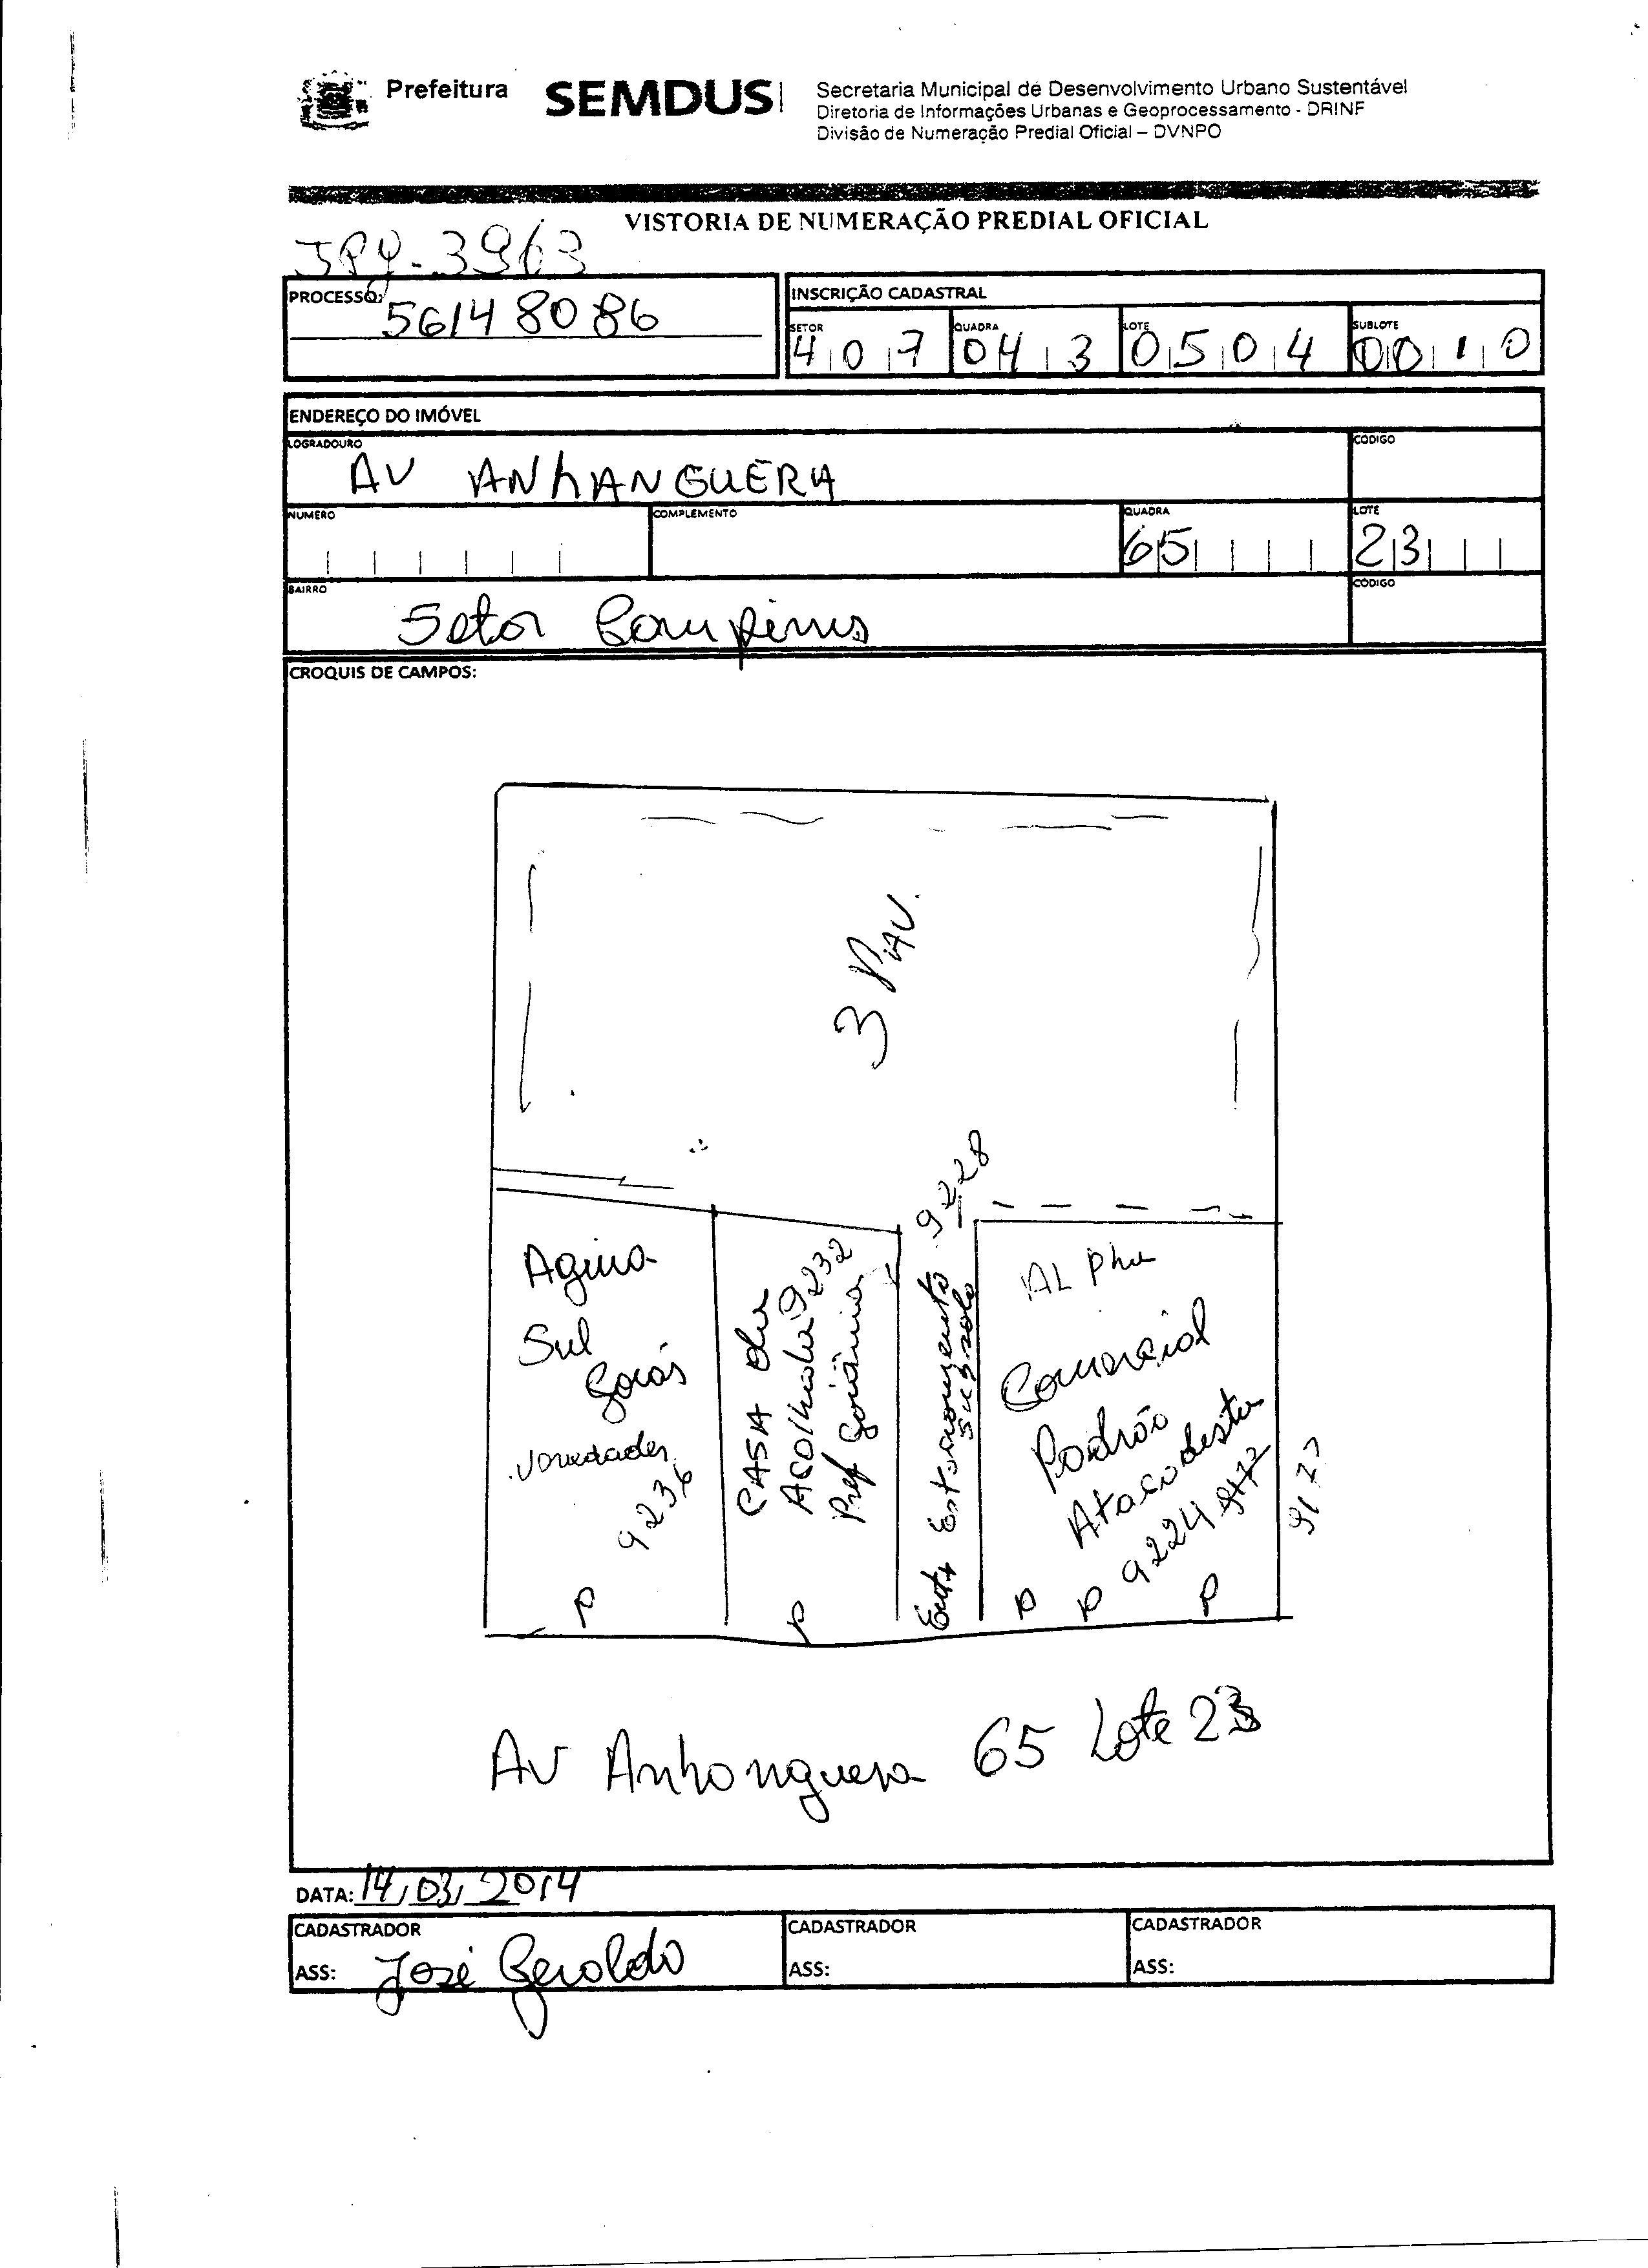 Prefeitura SEMDUS
Secretaria Municipal de Desenvolvimento Urbano Sustentável
Diretoria de Informações Urbanas e Geoprocessamento - DRINF
Divisão de Numeração Predial Oficial – DVNPO
VISTORIA DE NUMERAÇÃO PREDIAL OFICIAL
3963
PROCESSO: 56148086
INSCRIÇÃO CADASTRAL
SETOR 407 QUADRA 043 LOTE 0504 SUBLOTE 0010
ENDEREÇO DO IMÓVEL
LOGRADOURO CÓDIGO
AV ANhANGUERA
NUMERO COMPLEMENTO QUADRA 65 LOTE 23
BAIRRO CÓDIGO
Setor Campinas
CROQUIS DE CAMPOS:
3 PAV.
Sul
Goiás
9236
P
CASA da
Acolhida 9232
Pref Goiânia
P
9228
Estacionamento
ALPha
Comercial
Padrão
Atacadista
9224 9177
P P P
9177
AV Anhanguera 65 Lote 23
DATA: 14/03/2014
CADASTRADOR
ASS: José Geraldo
CADASTRADOR
ASS:
CADASTRADOR
ASS: